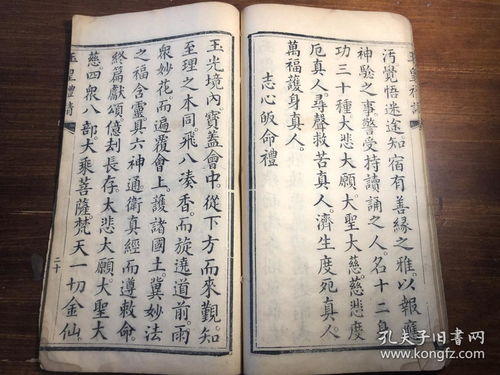 汚覺悟迷途知宿有善縁之雅以報應
神騐之事警受持讀誦之人名十二身
功三十種大悲大願大聖大慈慈悲度
厄真人尋聲救苦真人濟生度寃真人
萬福護身真人
志心皈命禮
玉光境內寳蓋會中從下方而來觀知
至理之本同飛八凑香而旋遶道前雨
衆妙花而遍覆會上護諸國土冀妙法
之福含靈具六神通衛真經而遵敕命
終篇獻頌億刦長存大悲大願大聖大
慈四衆八部大乘菩薩梵天一切金仙
二十
孔夫子旧书网
www.kongfz.com